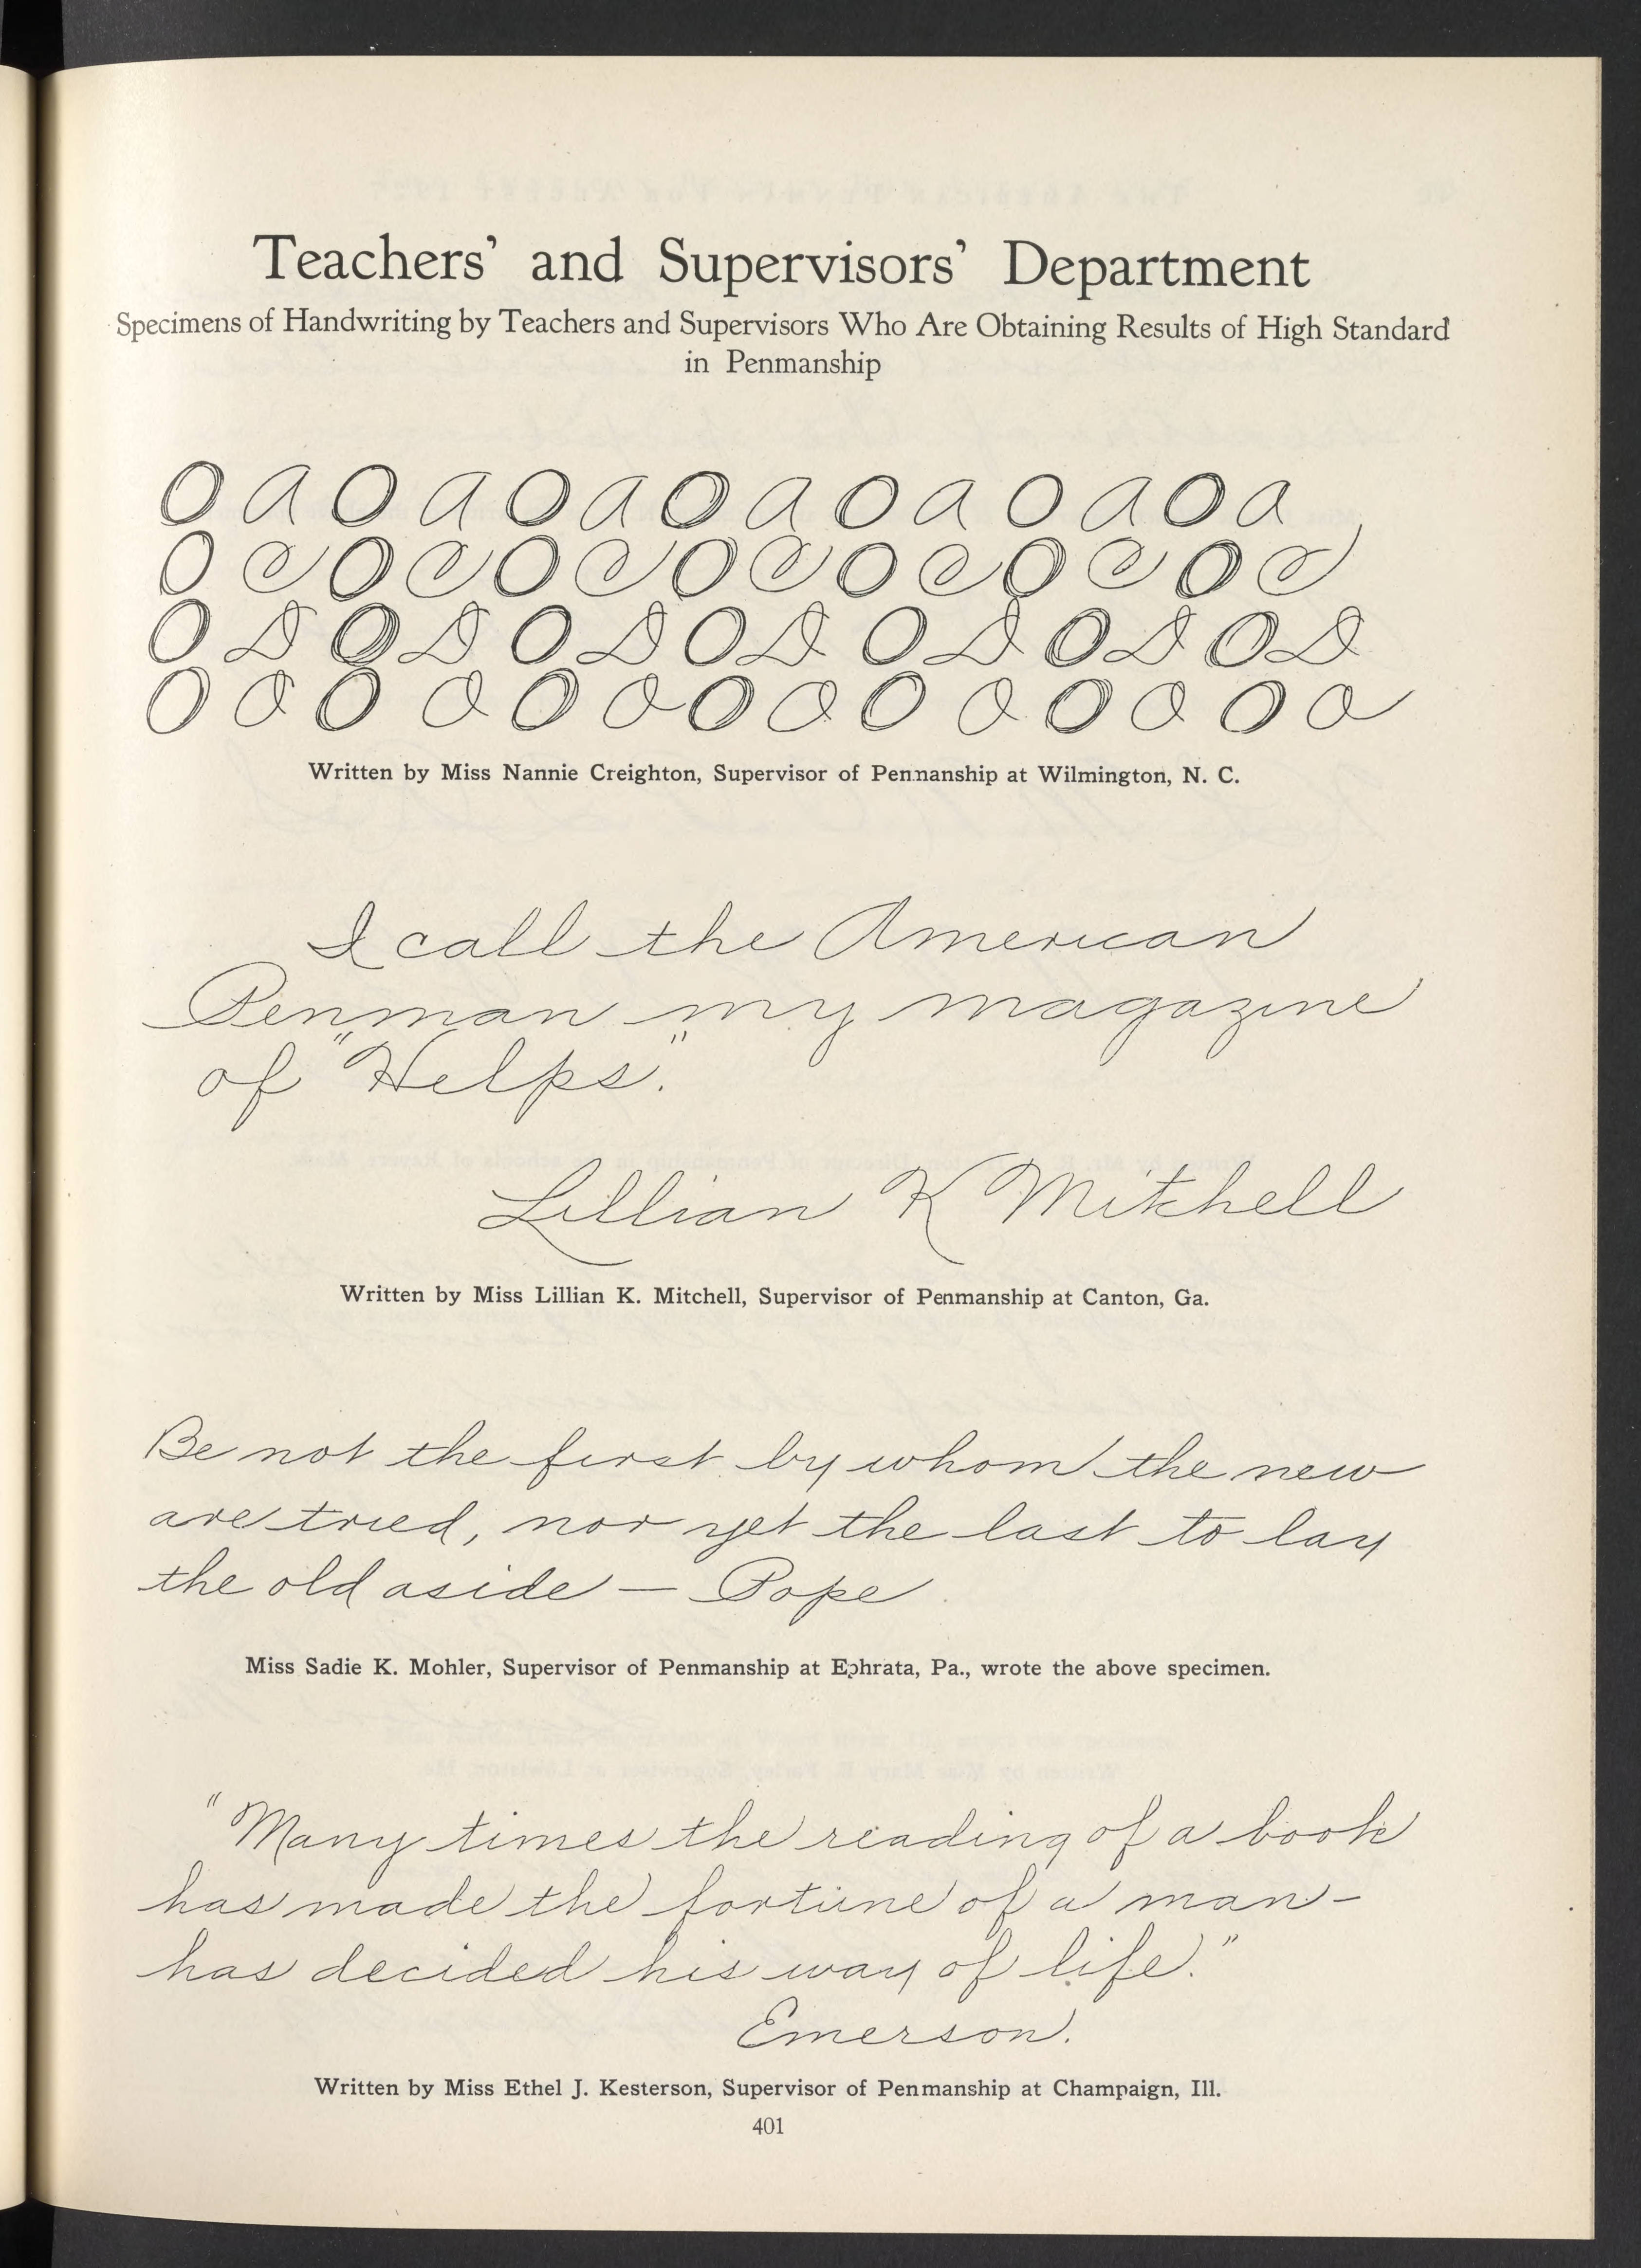 Teachers' and Supervisors' Department
Specimens of Handwriting by Teachers and Supervisors Who Are Obtaining Results of High Standard
in Penmanship
O a O a O a O a O a O a O a
O C O C O C O C O C O C O C
O D O D O D O D O D O D O D
O O O O O O O O O O O O O O
Written by Miss Nannie Creighton, Supervisor of Penmanship at Wilmington, N. C.
I call the American
Penman my magazine
of "Helps."
Lillian K Mitchell
Written by Miss Lillian K. Mitchell, Supervisor of Penmanship at Canton, Ga.
Be not the first by whom the new
are tried, nor yet the last to lay
the old aside — Pope
Miss Sadie K. Mohler, Supervisor of Penmanship at Ephrata, Pa., wrote the above specimen.
"Many times the reading of a book
has made the fortune of a man-
has decided his way of life."
Emerson.
Written by Miss Ethel J. Kesterson, Supervisor of Penmanship at Champaign, Ill.
401